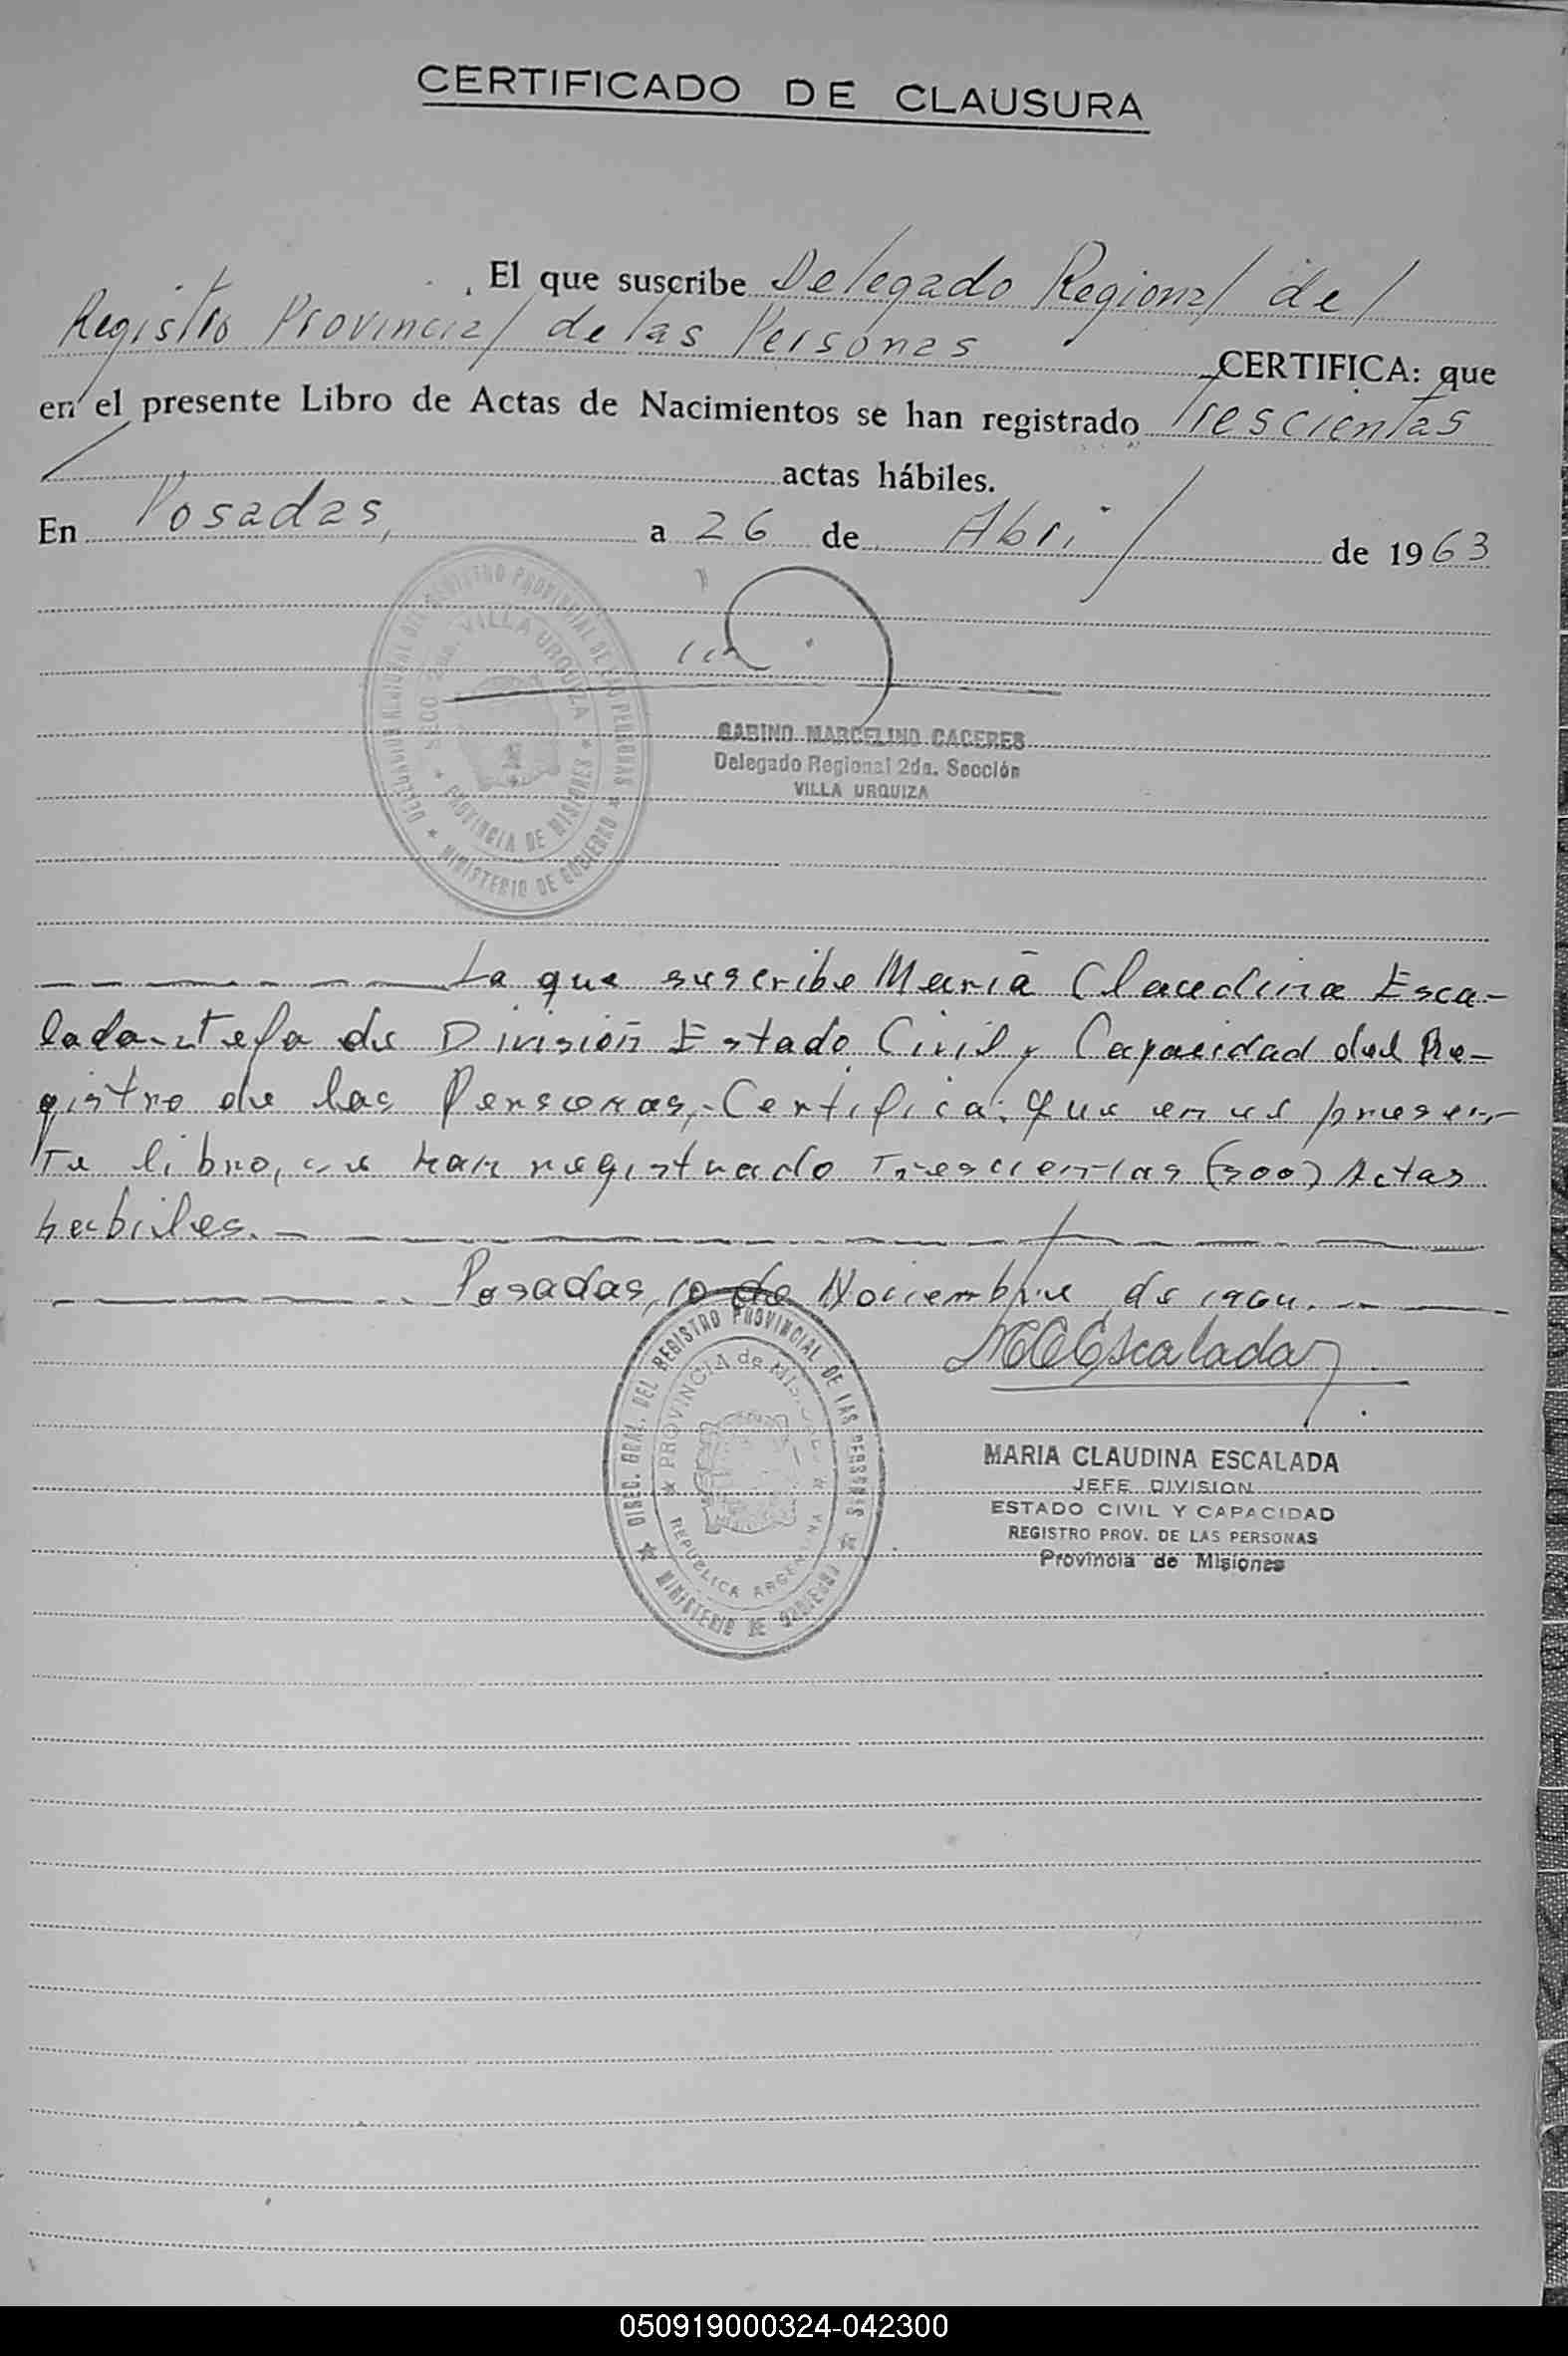 CERTIFICADO DE CLAUSURA
El que suscribe Delegado Regional del
Registro Provincial de las Personas CERTIFICA: que
en el presente Libro de Actas de Nacimientos se han registrado Trescientas
actas hábiles.
En Posadas, a 26 de Abril de 1963
DELEGADO REGIONAL DEL REGISTRO PROVINCIAL DE LAS PERSONAS
SECC. 2da. VILLA URQUIZA
PROVINCIA DE MISIONES
MINISTERIO DE GOBIERNO
GABINO MARCELINO CACERES
Delegado Regional 2da. Sección
VILLA URQUIZA
La que suscribe María Claudina Esca-
lada Jefa de División Estado Civil y Capacidad del Re-
gistro de las Personas,- Certifica: que en el presen-
te libro, se han registrado Trescientas (300) Actas
habiles.-
Posadas, 10 de Noviembre de 1964.
MCEscalada
DIREC. GRAL. DEL REGISTRO PROVINCIAL DE LAS PERSONAS
PROVINCIA de MISIONES
REPUBLICA ARGENTINA
MINISTERIO DE GOBIERNO
MARIA CLAUDINA ESCALADA
JEFE DIVISION
ESTADO CIVIL Y CAPACIDAD
REGISTRO PROV. DE LAS PERSONAS
Provincia de Misiones
050919000324-042300